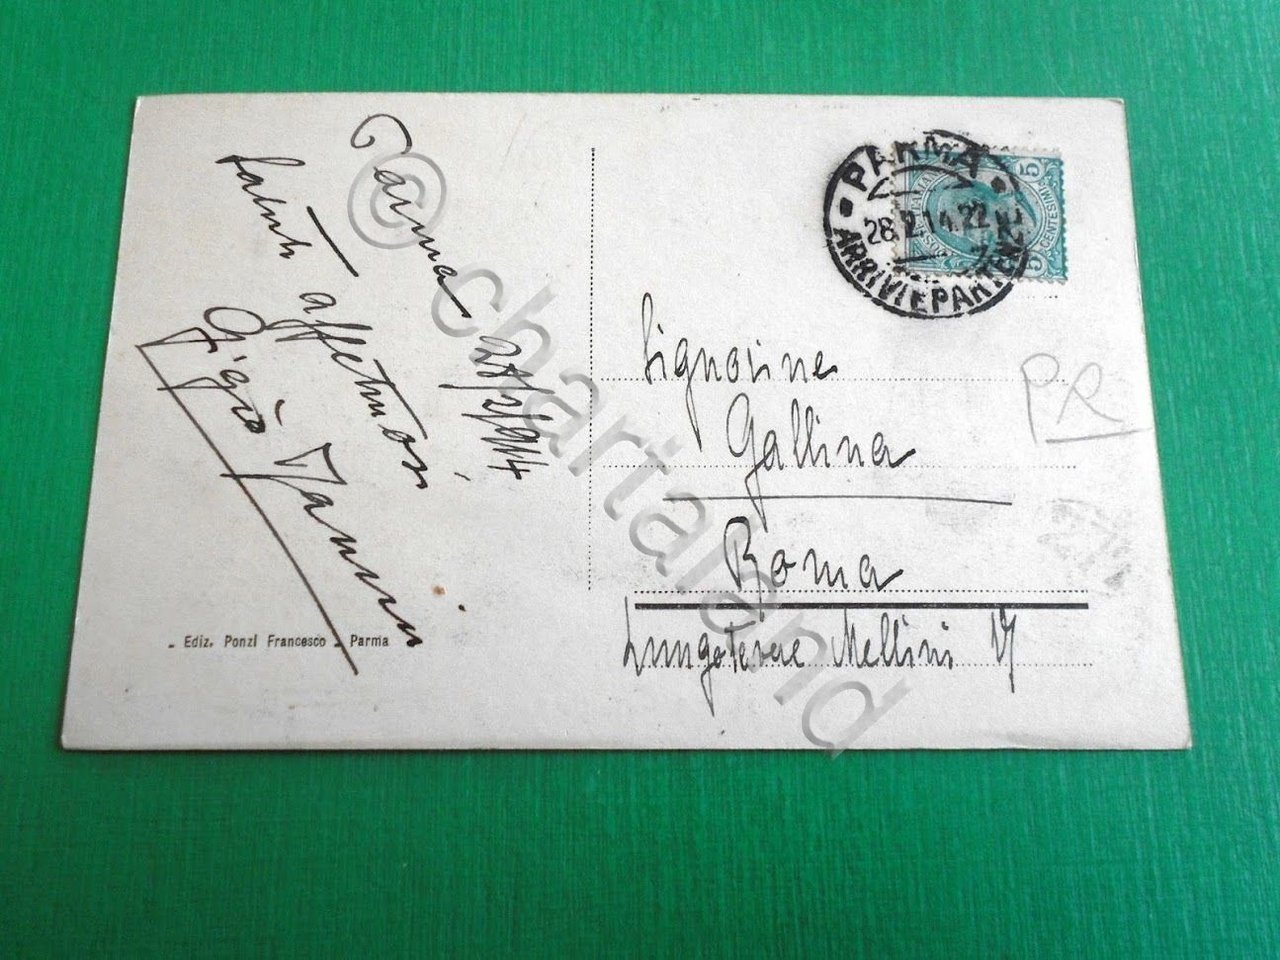 Parma 28/2/914
Saluti affettuosi
Gigio
Ediz. Ponzi Francesco - Parma
PARMA
28.2.14.22
ARRIVI E PARTENZE
5
CENTESIMI
5
Signorine
Gallina
Roma
Lungotevere Mellini 17
PR
© chartaland